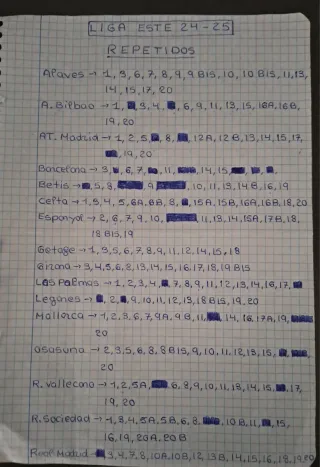 LIGA ESTE 24-25
REPETIDOS
Alaves → 1, 5, 6, 7, 8, 9, 9 BIS, 10, 10 BIS, 11, 13,
14, 15, 17, 20
A. Bilbao → 1, 3, 4, 6, 9, 11, 13, 15, 16A, 16B,
19, 20
AT. Madrid → 1, 2, 5, 8, 12A, 12B, 13, 14, 15, 17,
19, 20
Barcelona → 3, 6, 7, 11, 14, 15
Betis → 5, 8, 9, 10, 11, 13, 14B, 16, 19
Celta → 1, 3, 4, 5, 6A, 6B, 8, 15A, 15B, 16A, 16B, 18, 20
Espanyol → 2, 6, 7, 9, 10, 11, 13, 14, 15A, 17B, 18,
18 BIS, 19
Getafe → 1, 3, 5, 6, 7, 8, 9, 11, 12, 14, 15, 18
Girona → 3, 4, 5, 6, 8, 13, 14, 15, 16, 17, 18, 19 BIS
Las Palmas → 1, 2, 3, 4, 7, 8, 9, 11, 12, 13, 14, 16, 17
Leganes → 2, 9, 10, 11, 12, 13, 18 BIS, 19, 20
Mallorca → 1, 2, 3, 6, 7, 9A, 9B, 11, 14, 16, 17A, 19
20
Osasuna → 2, 3, 5, 6, 8, 8 BIS, 9, 10, 11, 12, 13, 15
20
R. Vallecano → 1, 2, 5A, 6, 8, 9, 10, 11, 13, 14, 15, 17,
19, 20
R. Sociedad → 1, 3, 4, 5A, 5B, 6, 8, 10B, 11, 15,
16, 19, 20A, 20B
Real Madrid → 3, 4, 7, 8, 10A, 10B, 12, 13B, 14, 15, 16, 18, 19, 20